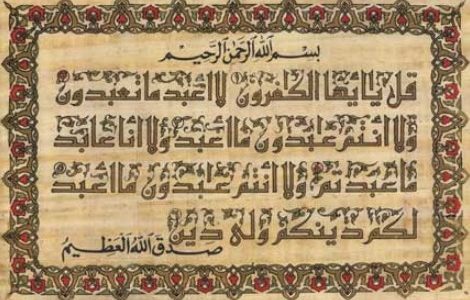 بسم الله الرحمن الرحيم
قل يا أيها الكفرون لا أعبد ما تعبدون
ولا أنتم عبدون ما أعبد ولا أنا عابد
ما عبدتم ولا أنتم عبدون ما أعبد
لكم دينكم ولى دين
صدق الله العظيم